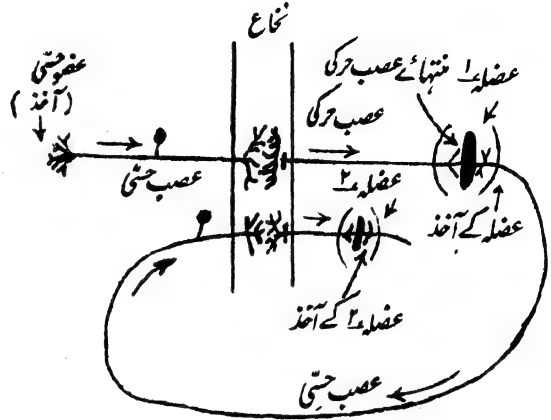 نخاع
عضو حسّی
(آخذ)
عصب حسّی
عصب حرکی
منتہائے عصب حرکی
عضلہ ۱
عضلہ ۲
عضلہ کے آخذ
عضلہ ۲ کے آخذ
عصب حسّی